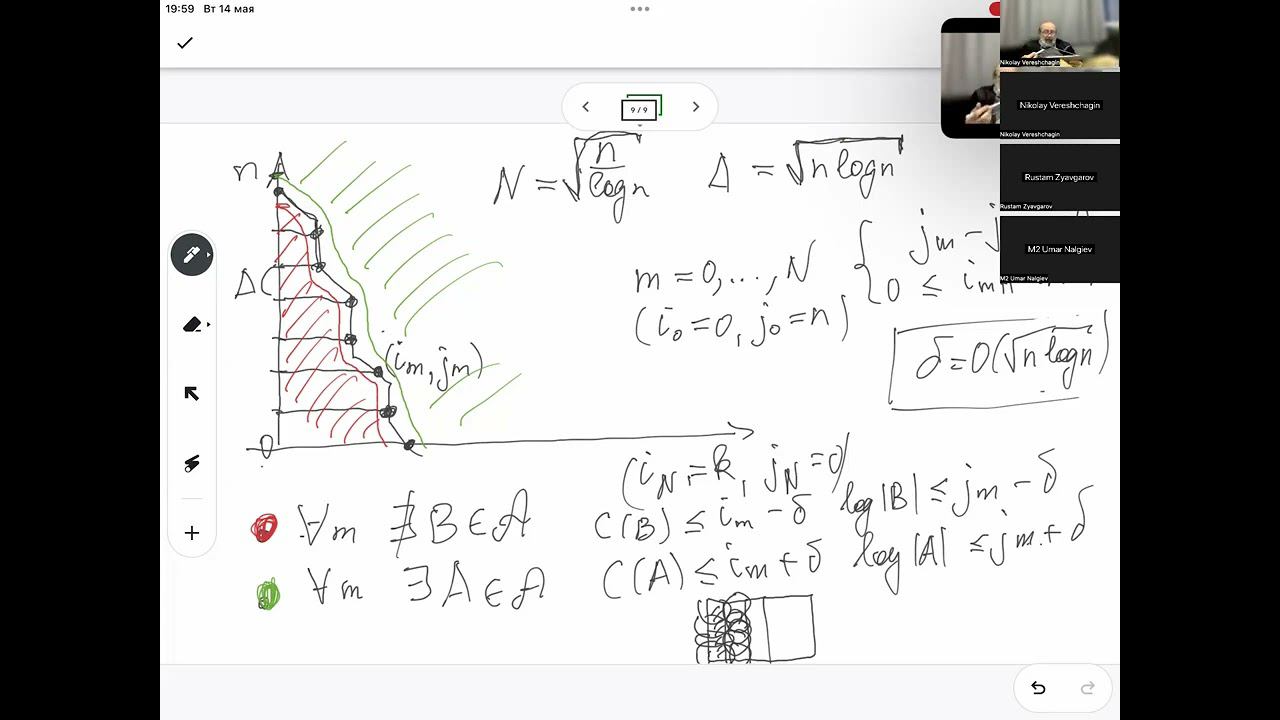 19:59 Вт 14 мая
9 / 9
Nikolay Vereshchagin
Nikolay Vereshchagin
Nikolay Vereshchagin
Rustam Zyavgarov
Rustam Zyavgarov
M2 Umar Nalgiev
M2 Umar Nalgiev
n
N = √(n/log n)   Δ = √(n log n)
Δ
m = 0, ..., N
(i₀ = 0, j₀ = n)
{ jₘ −
0 ≤ iₘ
δ = O(√(n log n))
(iₘ, jₘ)
0
(i_N = k, j_N = 0)
∀m ∄ B ∈ 𝒜   C(B) ≤ iₘ − δ   log|B| ≤ jₘ − δ
∀m ∃ A ∈ 𝒜   C(A) ≤ iₘ + δ   log|A| ≤ jₘ + δ